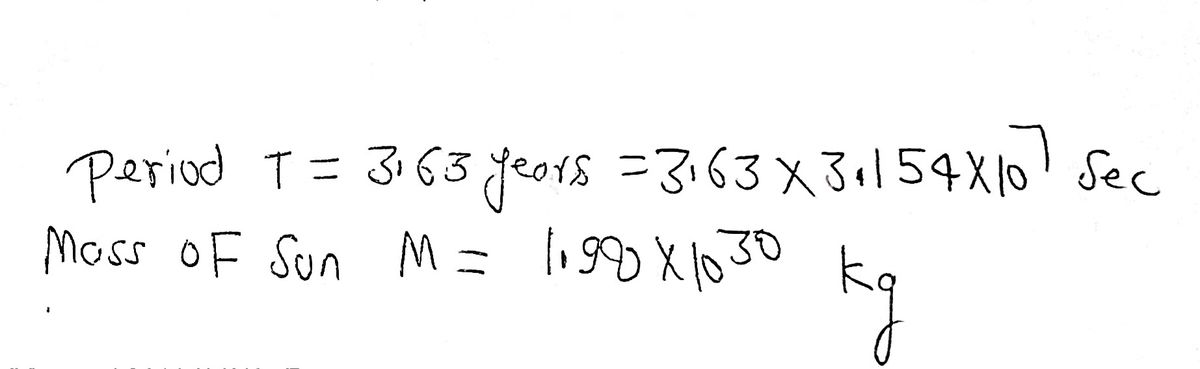 Period T = 3.63 years = 3.63 X 3.154 X 10^7 Sec
Mass OF Sun M = 1.990 X 10^30 kg